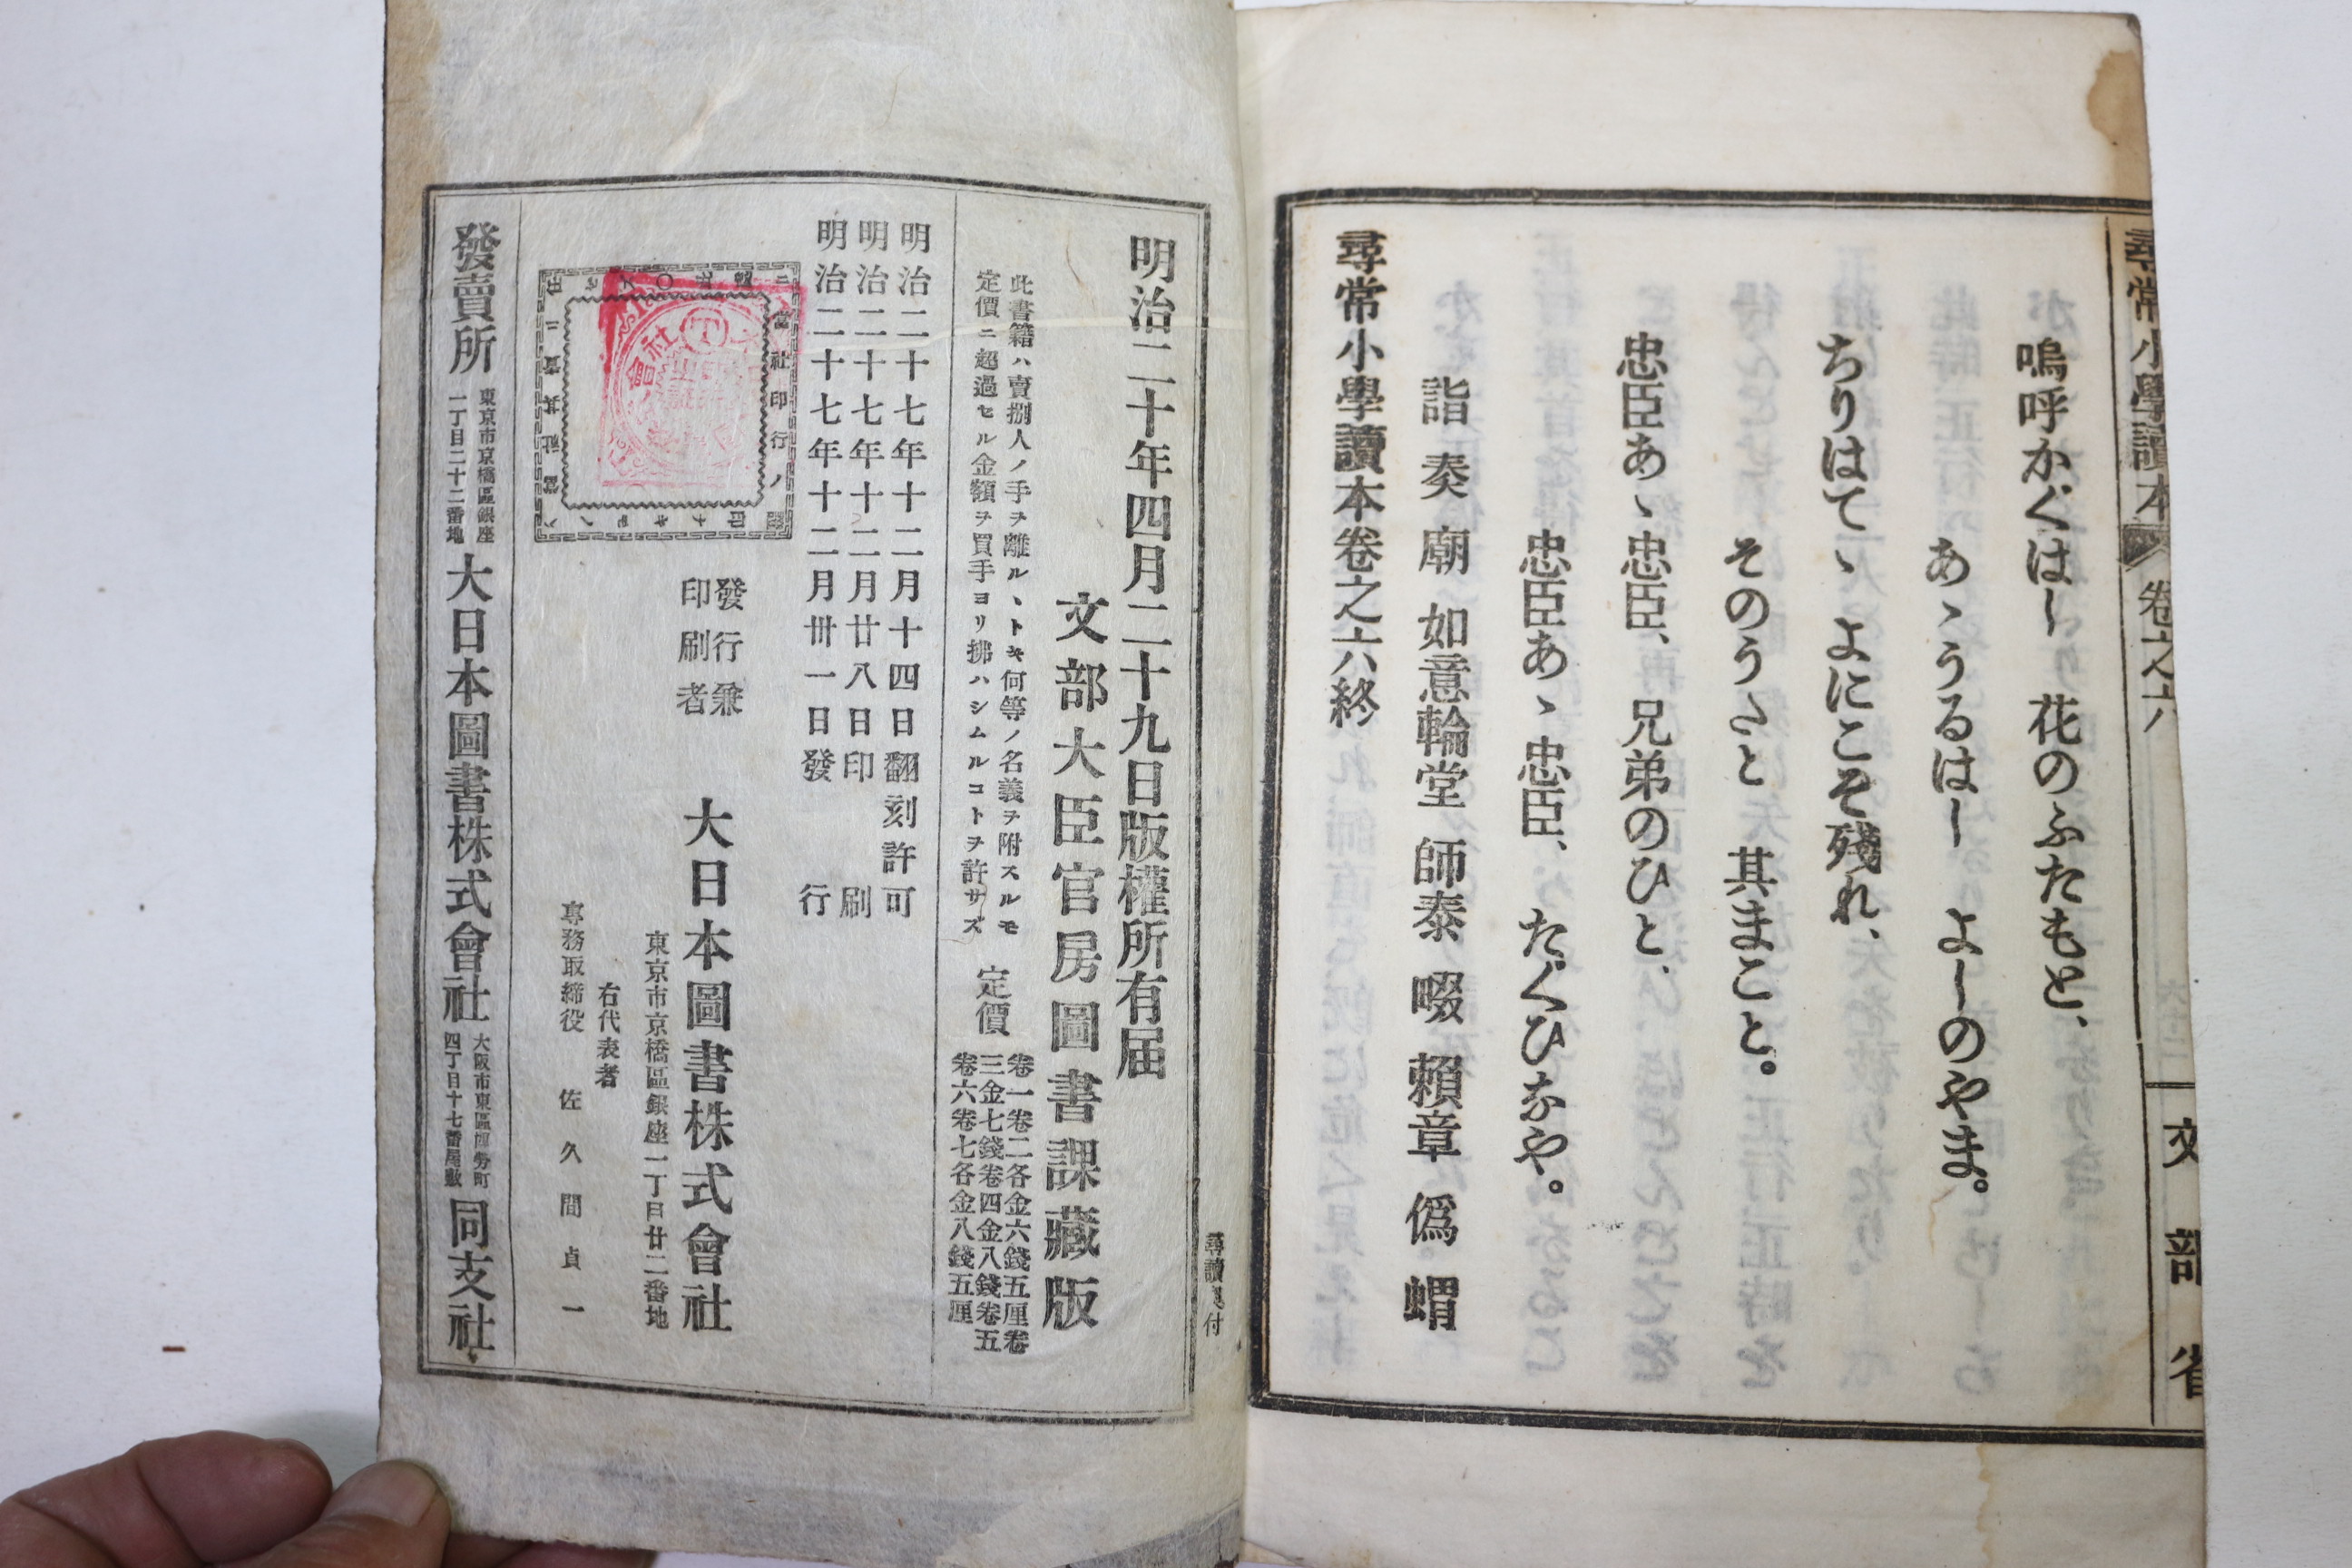 尋常小學讀本 卷之六
文部省
嗚呼かぐはし 花のふたもと、
あゝうるはし よしのやま。
ちりはてゝよにこそ殘れ、
そのうたと 其まこと。
忠臣あゝ忠臣、兄弟のひと、
忠臣あゝ忠臣、たぐひなや。
詣 奏 廟 如意輪堂 師泰 啜 賴章 僞 蝟
尋常小學讀本卷之六終
尋讀奥付
明治二十年四月二十九日版權所有届
文部大臣官房圖書課藏版
此書籍ハ賣捌人ノ手ヲ離ルヽトキ何等ノ名義ヲ附スルモ
定價ニ超過セル金額ヲ買手ヨリ拂ハシムルコトヲ許サズ
定價
卷一卷二各金六錢五厘卷
三金七錢卷四金八錢卷五
卷六卷七各金八錢五厘
明治二十七年十二月十四日翻刻許可
明治二十七年十二月廿八日印刷
明治二十七年十二月卅一日發行
發行兼
印刷者
大日本圖書株式會社
東京市京橋區銀座一丁目廿二番地
右代表者
專務取締役 佐久間貞一
發賣所
東京市京橋區銀座
一丁目二十二番地
大日本圖書株式會社
大阪市東區
四丁目十七番屋敷
同支社